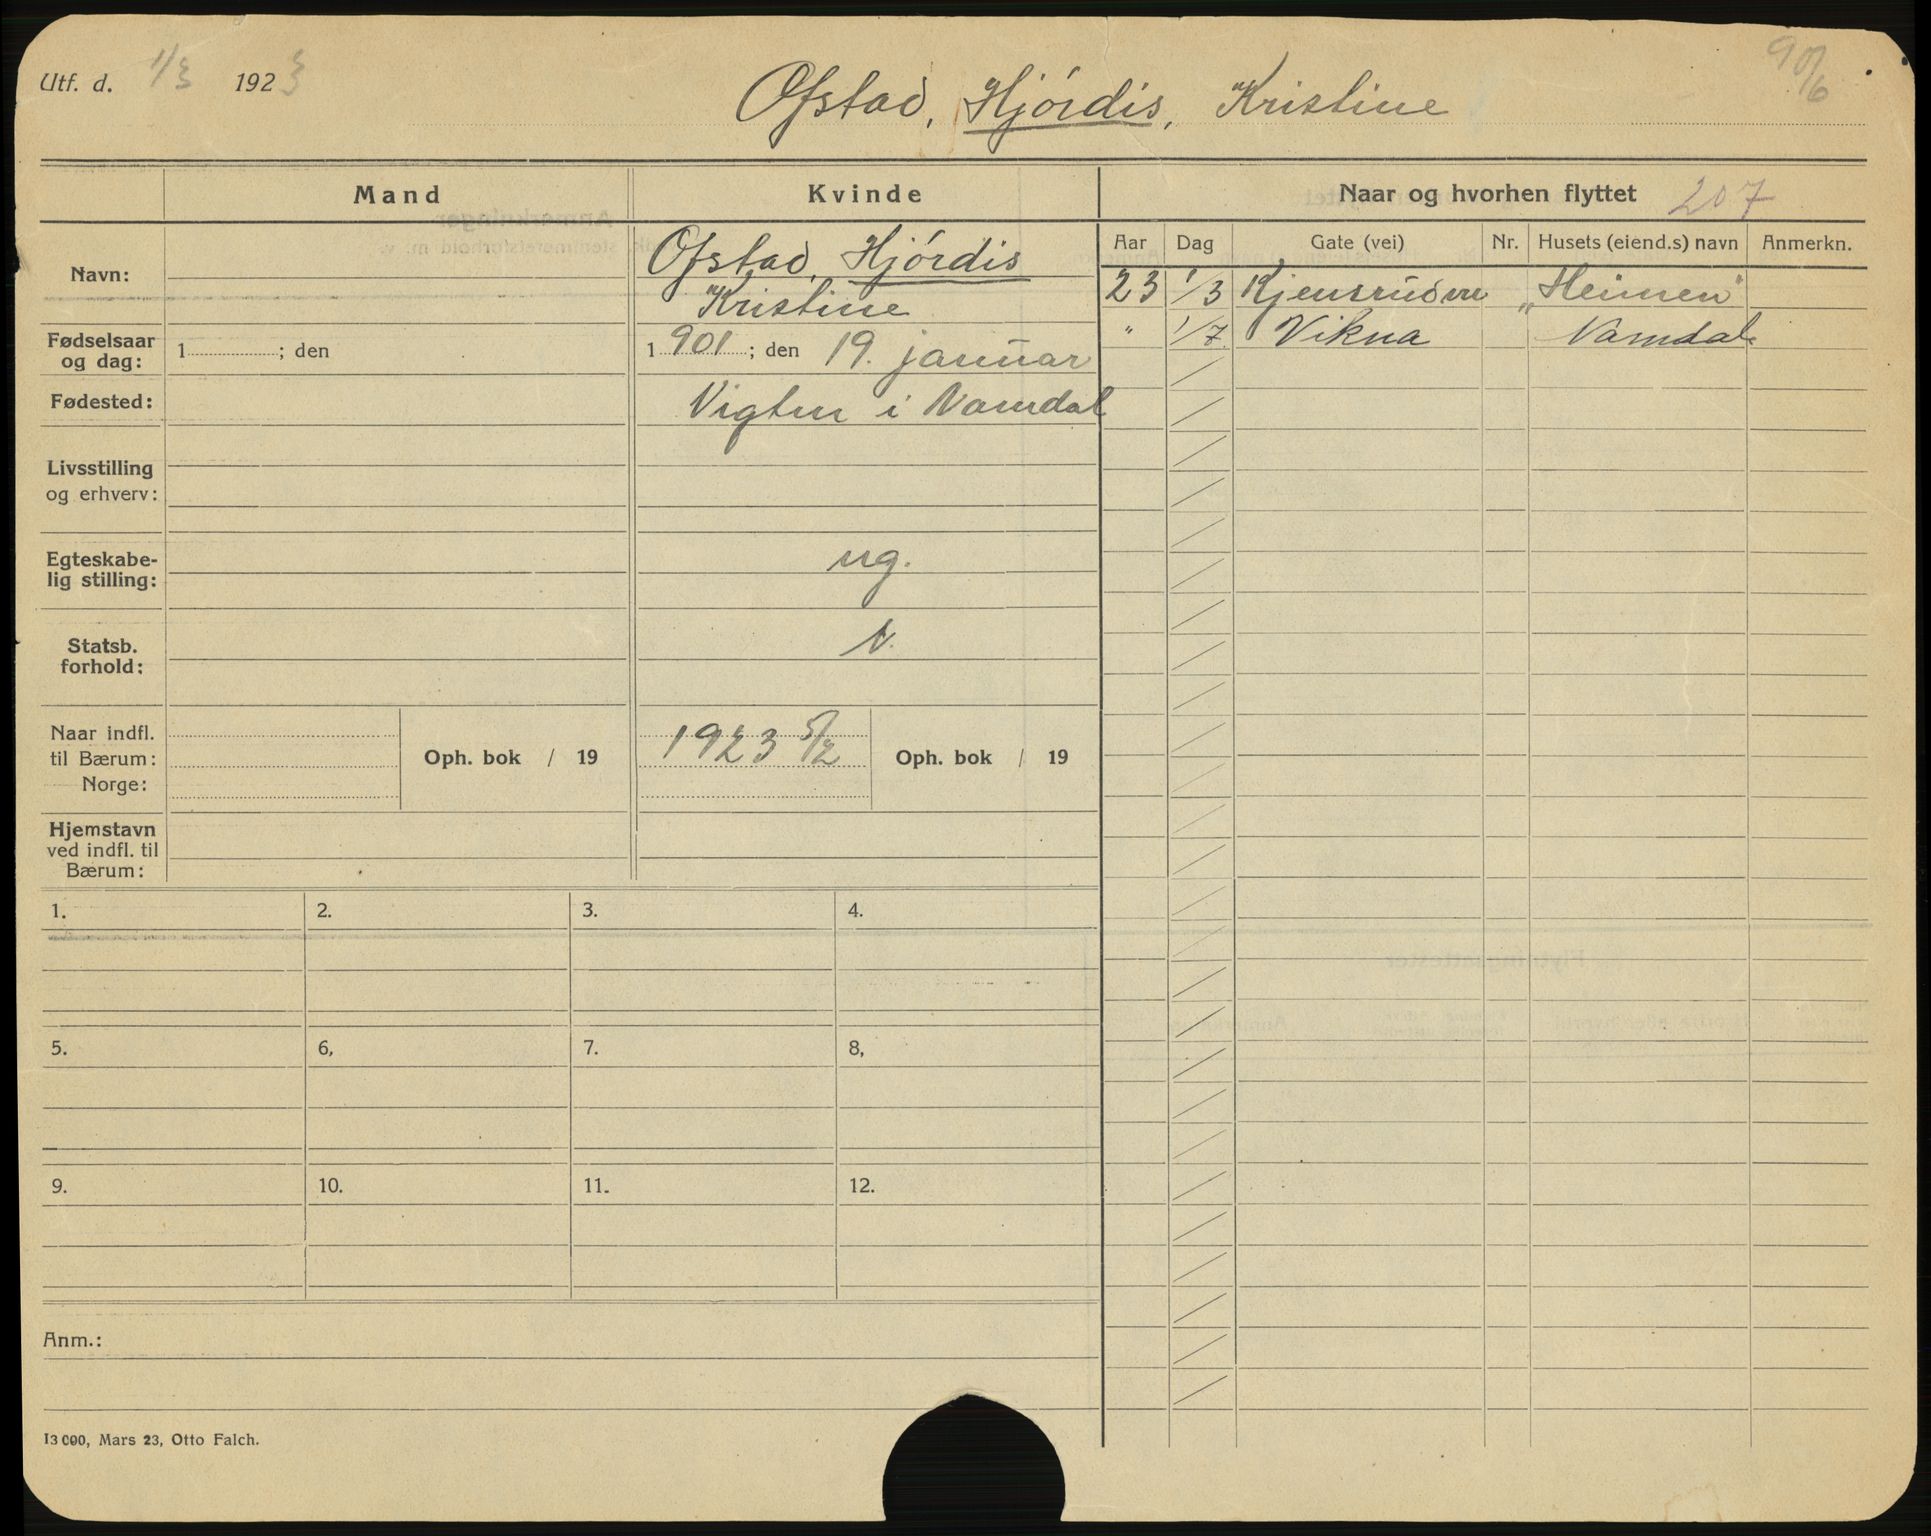 Utf. d. 1/3 1923
90/6
Ofstad, Hjórdis, Kristine
Mand
Kvinde
Naar og hvorhen flyttet 207
Aar Dag Gate (vei) Nr. Husets (eiend.s) navn Anmerkn.
Navn:
Ofstad, Hjórdis
Kristine
23 1/3 Kjensrudvn „Heimen"
" 1/7 Vikna Namdal
Fødselsaar
og dag:
1 ; den
1 901 ; den 19. januar
Fødested:
Vigten i Namdal
Livsstilling
og erhverv:
Egteskabe-
lig stilling:
ug.
Statsb.
forhold:
N.
Naar indfl.
til Bærum:
Norge:
Oph. bok / 19
1923 5/2
Oph. bok / 19
Hjemstavn
ved indfl. til
Bærum:
1. 2. 3. 4.
5. 6, 7. 8,
9. 10. 11. 12.
Anm.:
13 000, Mars 23, Otto Falch.